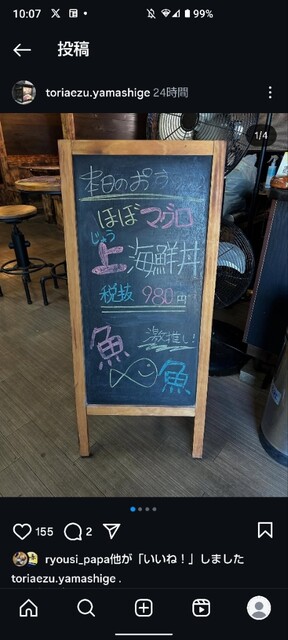 10:07
99%
投稿
toriaezu.yamashige 24時間
1/4
本日のおす
ほぼマグロ
じょう
上海鮮丼
税抜 980円
激推し!
魚
魚
155
2
ryousi_papa他が「いいね！」しました
toriaezu.yamashige .